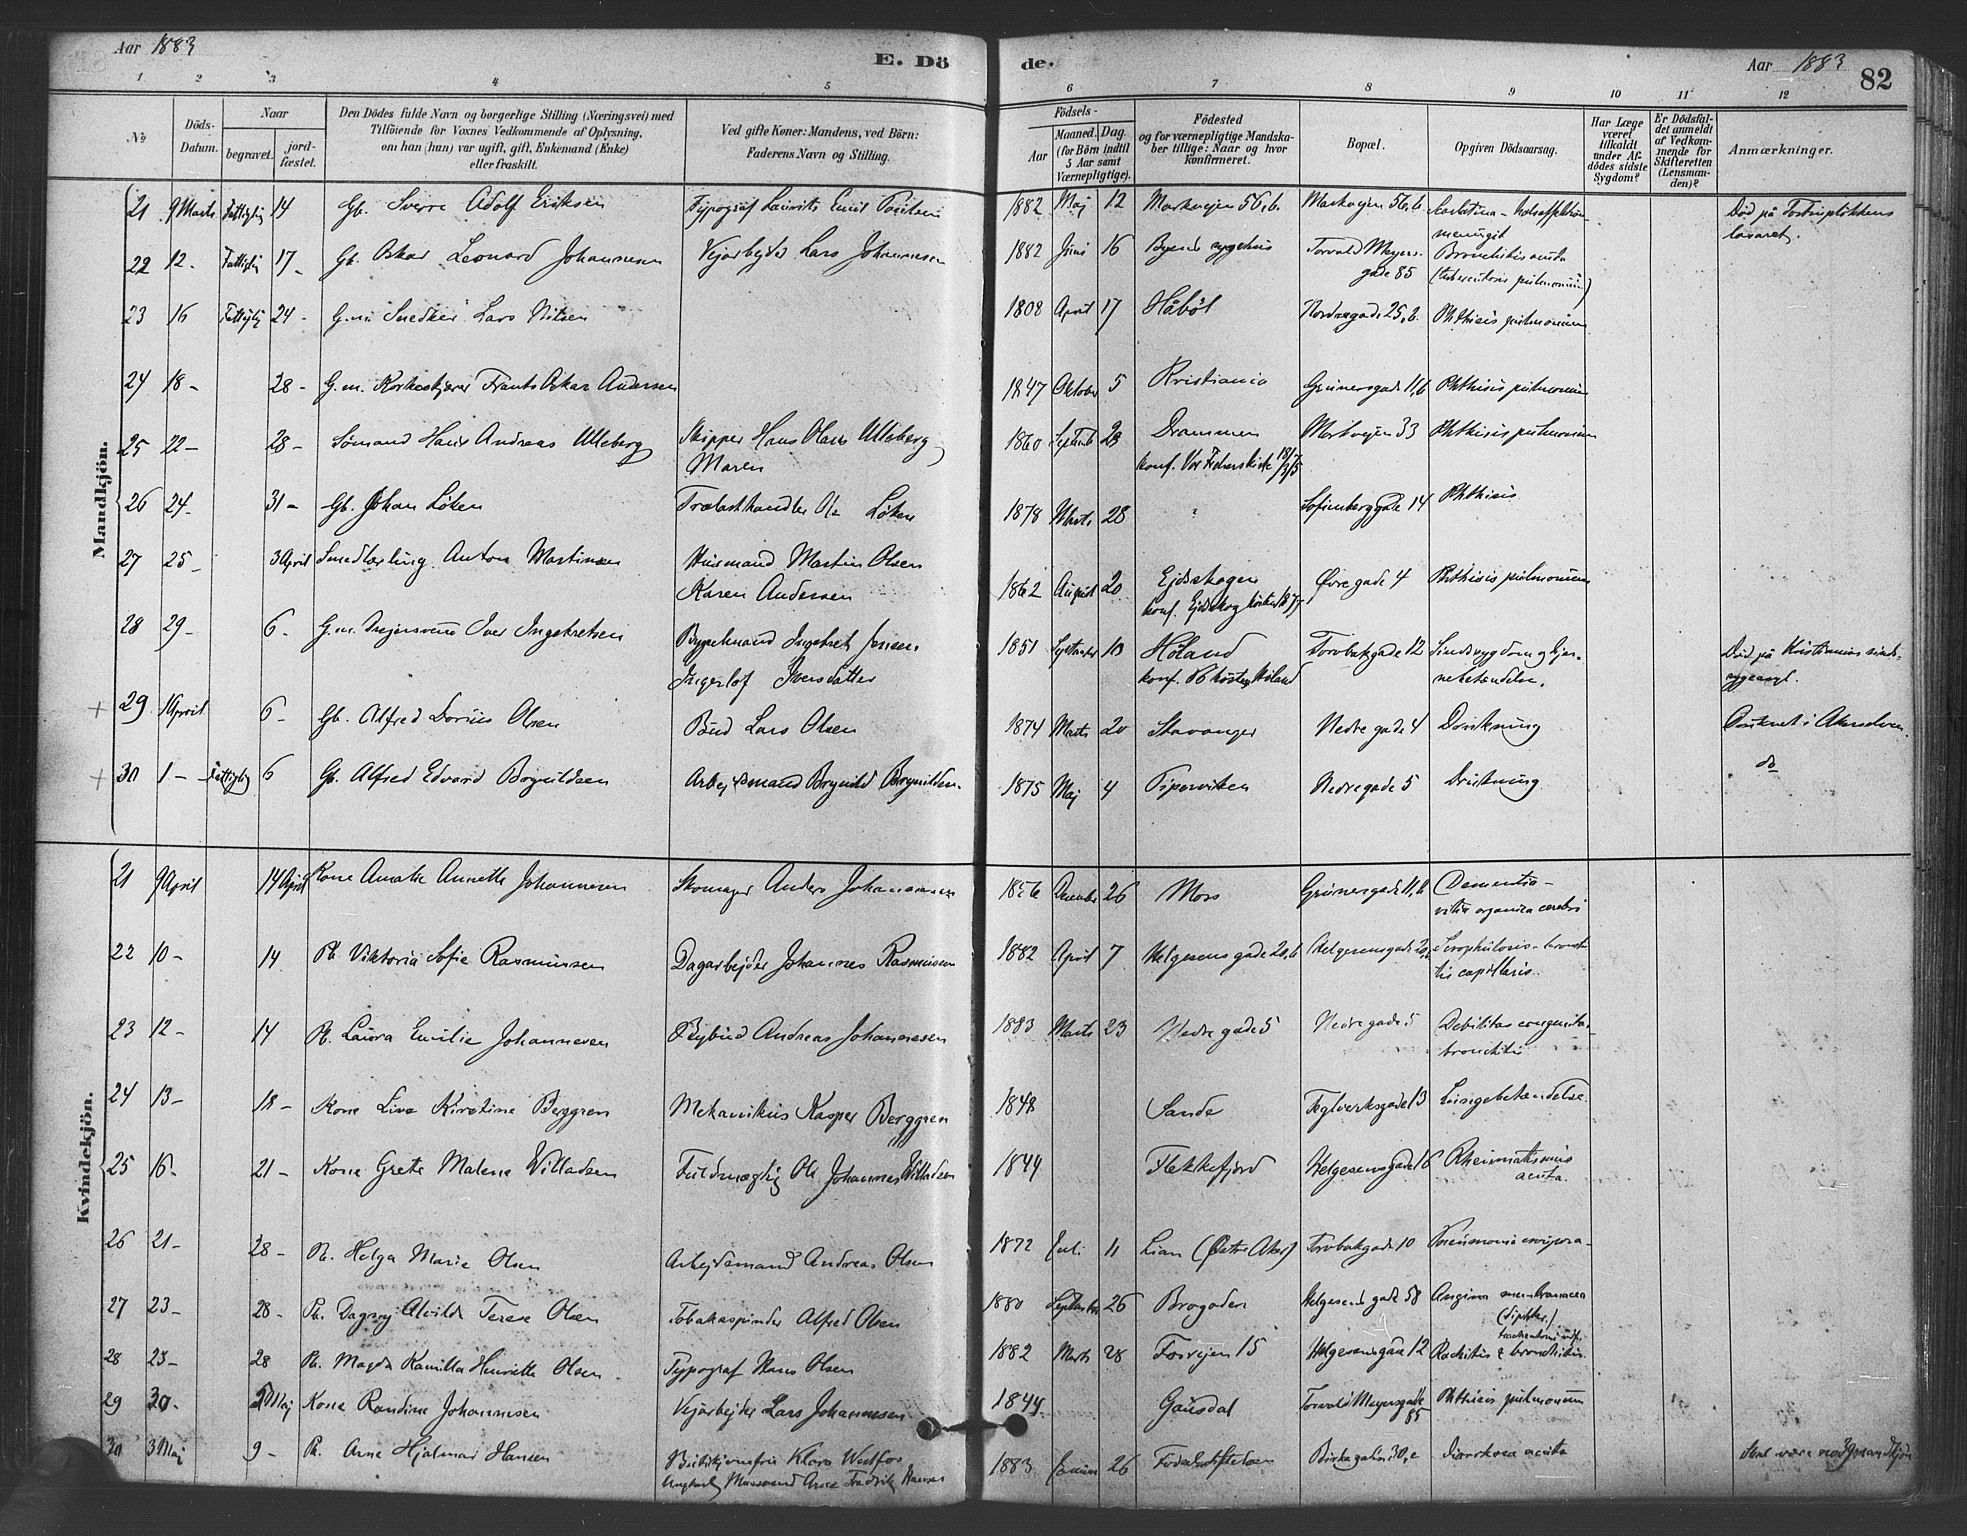 Aar 1883
E. Dö
de.
Aar 1883
82
1 2 3 4 5 6 7 8 9 10 11 12
No
Döds-
Datum.
Naar
begravet.
jord-
fæstet.
Den Dödes fulde Navn og borgerlige Stilling (Næringsvei) med
Tilföiende for Voxnes Vedkommende af Oplysning,
om han (hun) var ugift, gift, Enkemand (Enke)
eller fraskilt.
Ved gifte Koner: Mandens, ved Börn:
Faderens Navn og Stilling.
Födsels-
Aar
Maaned. Dag.
(for Börn indtil
5 Aar samt
Værnepligtige).
Födested
og for værnepligtige Mandska-
ber tillige: Naar og hvor
konfirmeret.
Bopæl.
Opgiven Dödsaarsag.
Har Læge
været
tilkaldt
under Af-
dödes sidste
Sygdom?
Er Dödsfal-
det anmeldt
af Vedkom-
mende for
Skifteretten
(Lensman-
den)?
Anmærkninger.
Mandkjön.
21 9 Marts Fattiglig 14 Gb. Sverre Adolf Eriksen Typograf Laurits Emil 1882 Maj 12 Markvejen 56,b. Markvejen 56,b. Scarlatina -
meningit Død på
lasaret.
22 12 - Fattiglig 17 - Gb. Oskar Leonard Johannesen Vejarbejder Lars Johannesen 1882 Juni 16 Byens sygehus Torvald Meyers-
gade 85 Bronchitis acuta
(tuberculosis pulmonum)
23 16 Fattiglig 24 - G.m. Snedker Lars Nilsen 1808 April 17 Håbøl Nordregade 25,b. Phthisis pulmonum
24 18 - 28 - G.m. Korkeskjærer Frants Oskar Andersen 1847 Oktober 5 Kristiania Grünersgade 11,b Phthisis pulmonum
25 22 - 28 - Sømand Hans Andreas Ulleberg Skipper Hans Olaus Ulleberg
Maren 1860 Septemb 28 Drammen
konf. Vor Frelsers kirke Markvejen 33 Phthisis pulmonum
26 24. 31 - Gb. Johan Løken Trælasthandler Ole Løken 1878 Marts 28 Sofienberggade 14 Phthisis
27 25 - 3 April Smedlærling Anton Martinsen Husmand Martin Olsen
Karen Andersen 1862 August 20 Ejdskogen
konf. Ejdskog Øvregade 4 Phthisis pulmonum
28 29 - 6 - G.m. Dreiersvend Iver Ingebretsen Ingebret Jensen
Ingerlof Iversdatter 1851 September 10 Høland
konf. Høland Torvbakgade 12 Sindssygdom og hjer-
nebetændelse. Død på Kristiania sinds-
sygeasyl.
+ 29 1 April 6 - Gb. Alfred Dorius Olsen Bud Lars Olsen 1874 Marts 20 Stavanger Nedregade 4 Drukning Druknet i Akerselven.
+ 30 1 - Fattiglig 6 Gb. Alfred Edvard Brynildsen Arbejdsmand Brynild Brynildsen. 1875 Maj 4 Pipervviken Nedregade 5 Drukning. do
Kvindekjön.
21 9 April 14 April Kone Amalie Annette Johannesen Skomager Anders Johannesen 1856 December 26 Moss Grünersgade 11,b Dementia -
vitia organica cerebri
22 10 - 14 Pb. Viktoria Sofie Rasmussen Dagarbejder Johannes Rasmussen 1882 April 7 Helgesensgade 20,b Helgesensgade 20,b Scrophulosis - bronchi-
tis capillaris.
23 12 - 14 Pb. Laura Emilie Johannesen Johannesen 1883 Marts 23 Nedregade 5 Nedregade 5 Debilitas congenita -
bronchitis
24 13 - 18 - Kone Lina Kirstine Berggren Mekanikus Kasper Berggren 1848 Sande Teglverksgade 13 Lungebetændelse.
25 16 - 21 - Kone Grete Malene Willadsen Fuldmægtig Ole Johannes Willadsen 1844 Flekkefjord Helgesensgade 16 Rheumatismus
acuta.
26 21 - 28 - Pb. Helga Marie Olsen Arbejdsmand Andreas Olsen 1872 Juli 11 Lian (Østre Aker) Torvbakgade 10 Pneumonia crouposa -
27 23 - 28 - Pb. Dagny Alvilda Terese Olsen Tobakspinder Alfred Olsen 1880 September 26 Brogaden Helgesens gade 58 Angina membranacea
(diphther.)
28 23 - 28 Pb. Magda Kamilla Henriette Olsen Typograf Hans Olsen 1882 Marts 28 Fosvejen 15 Helgesensgade 12 Rachitis & bronchitis.
29 30 - 5 Maj Kone Randine Johannesen Vejarbejder Lars Johannesen 1844 Gausdal Torvald Meyersgade
85 Phthisis pulmonum
30 3 Maj 9 - Pb. Arne Hjalmar Hansen Klara Westfos
Ungkarl Arne Fredrik Hansen 1883 Januar 26 Fødselsstiftelsen Birkegaden 30,e diarrhoea acuta Skal være mandkjøn